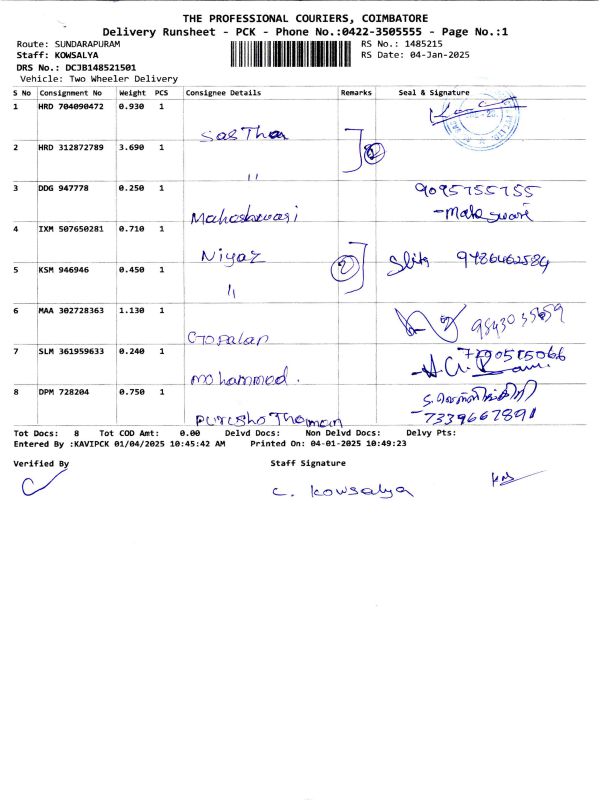 THE PROFESSIONAL COURIERS, COIMBATORE
Delivery Runsheet - PCK - Phone No.:0422-3505555 - Page No.:1
Route: SUNDARAPURAM RS No.: 1485215
Staff: KOWSALYA RS Date: 04-Jan-2025
DRS No.: DCJB148521501
Vehicle: Two Wheeler Delivery
S No Consignment No Weight PCS Consignee Details Remarks Seal & Signature
1 HRD 704090472 0.930 1
SasTha
2 HRD 312872789 3.690 1 2
"
3 DDG 947778 0.250 1 9095755755
Maheshwari
4 IXM 507650281 0.710 1
Niyaz 9486462584
5 KSM 946946 0.450 1 2
"
6 MAA 302728363 1.130 1
Gopalan
7 SLM 361959633 0.240 1
mohammad.
8 DPM 728204 0.750 1
Purusho Thaman 7339667891
Tot Docs: 8 Tot COD Amt: 0.00 Delvd Docs: Non Delvd Docs: Delvy Pts:
Entered By :KAVIPCK 01/04/2025 10:45:42 AM Printed On: 04-01-2025 10:49:23
Verified By Staff Signature
C. Kowsalya